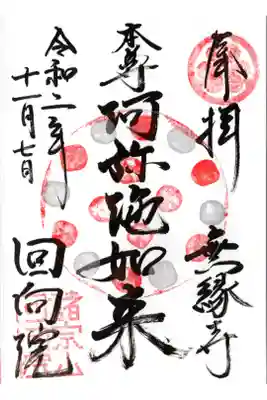 奉拝
無縁寺
本尊
阿弥陀如来
令和二年
十一月七日
回向院